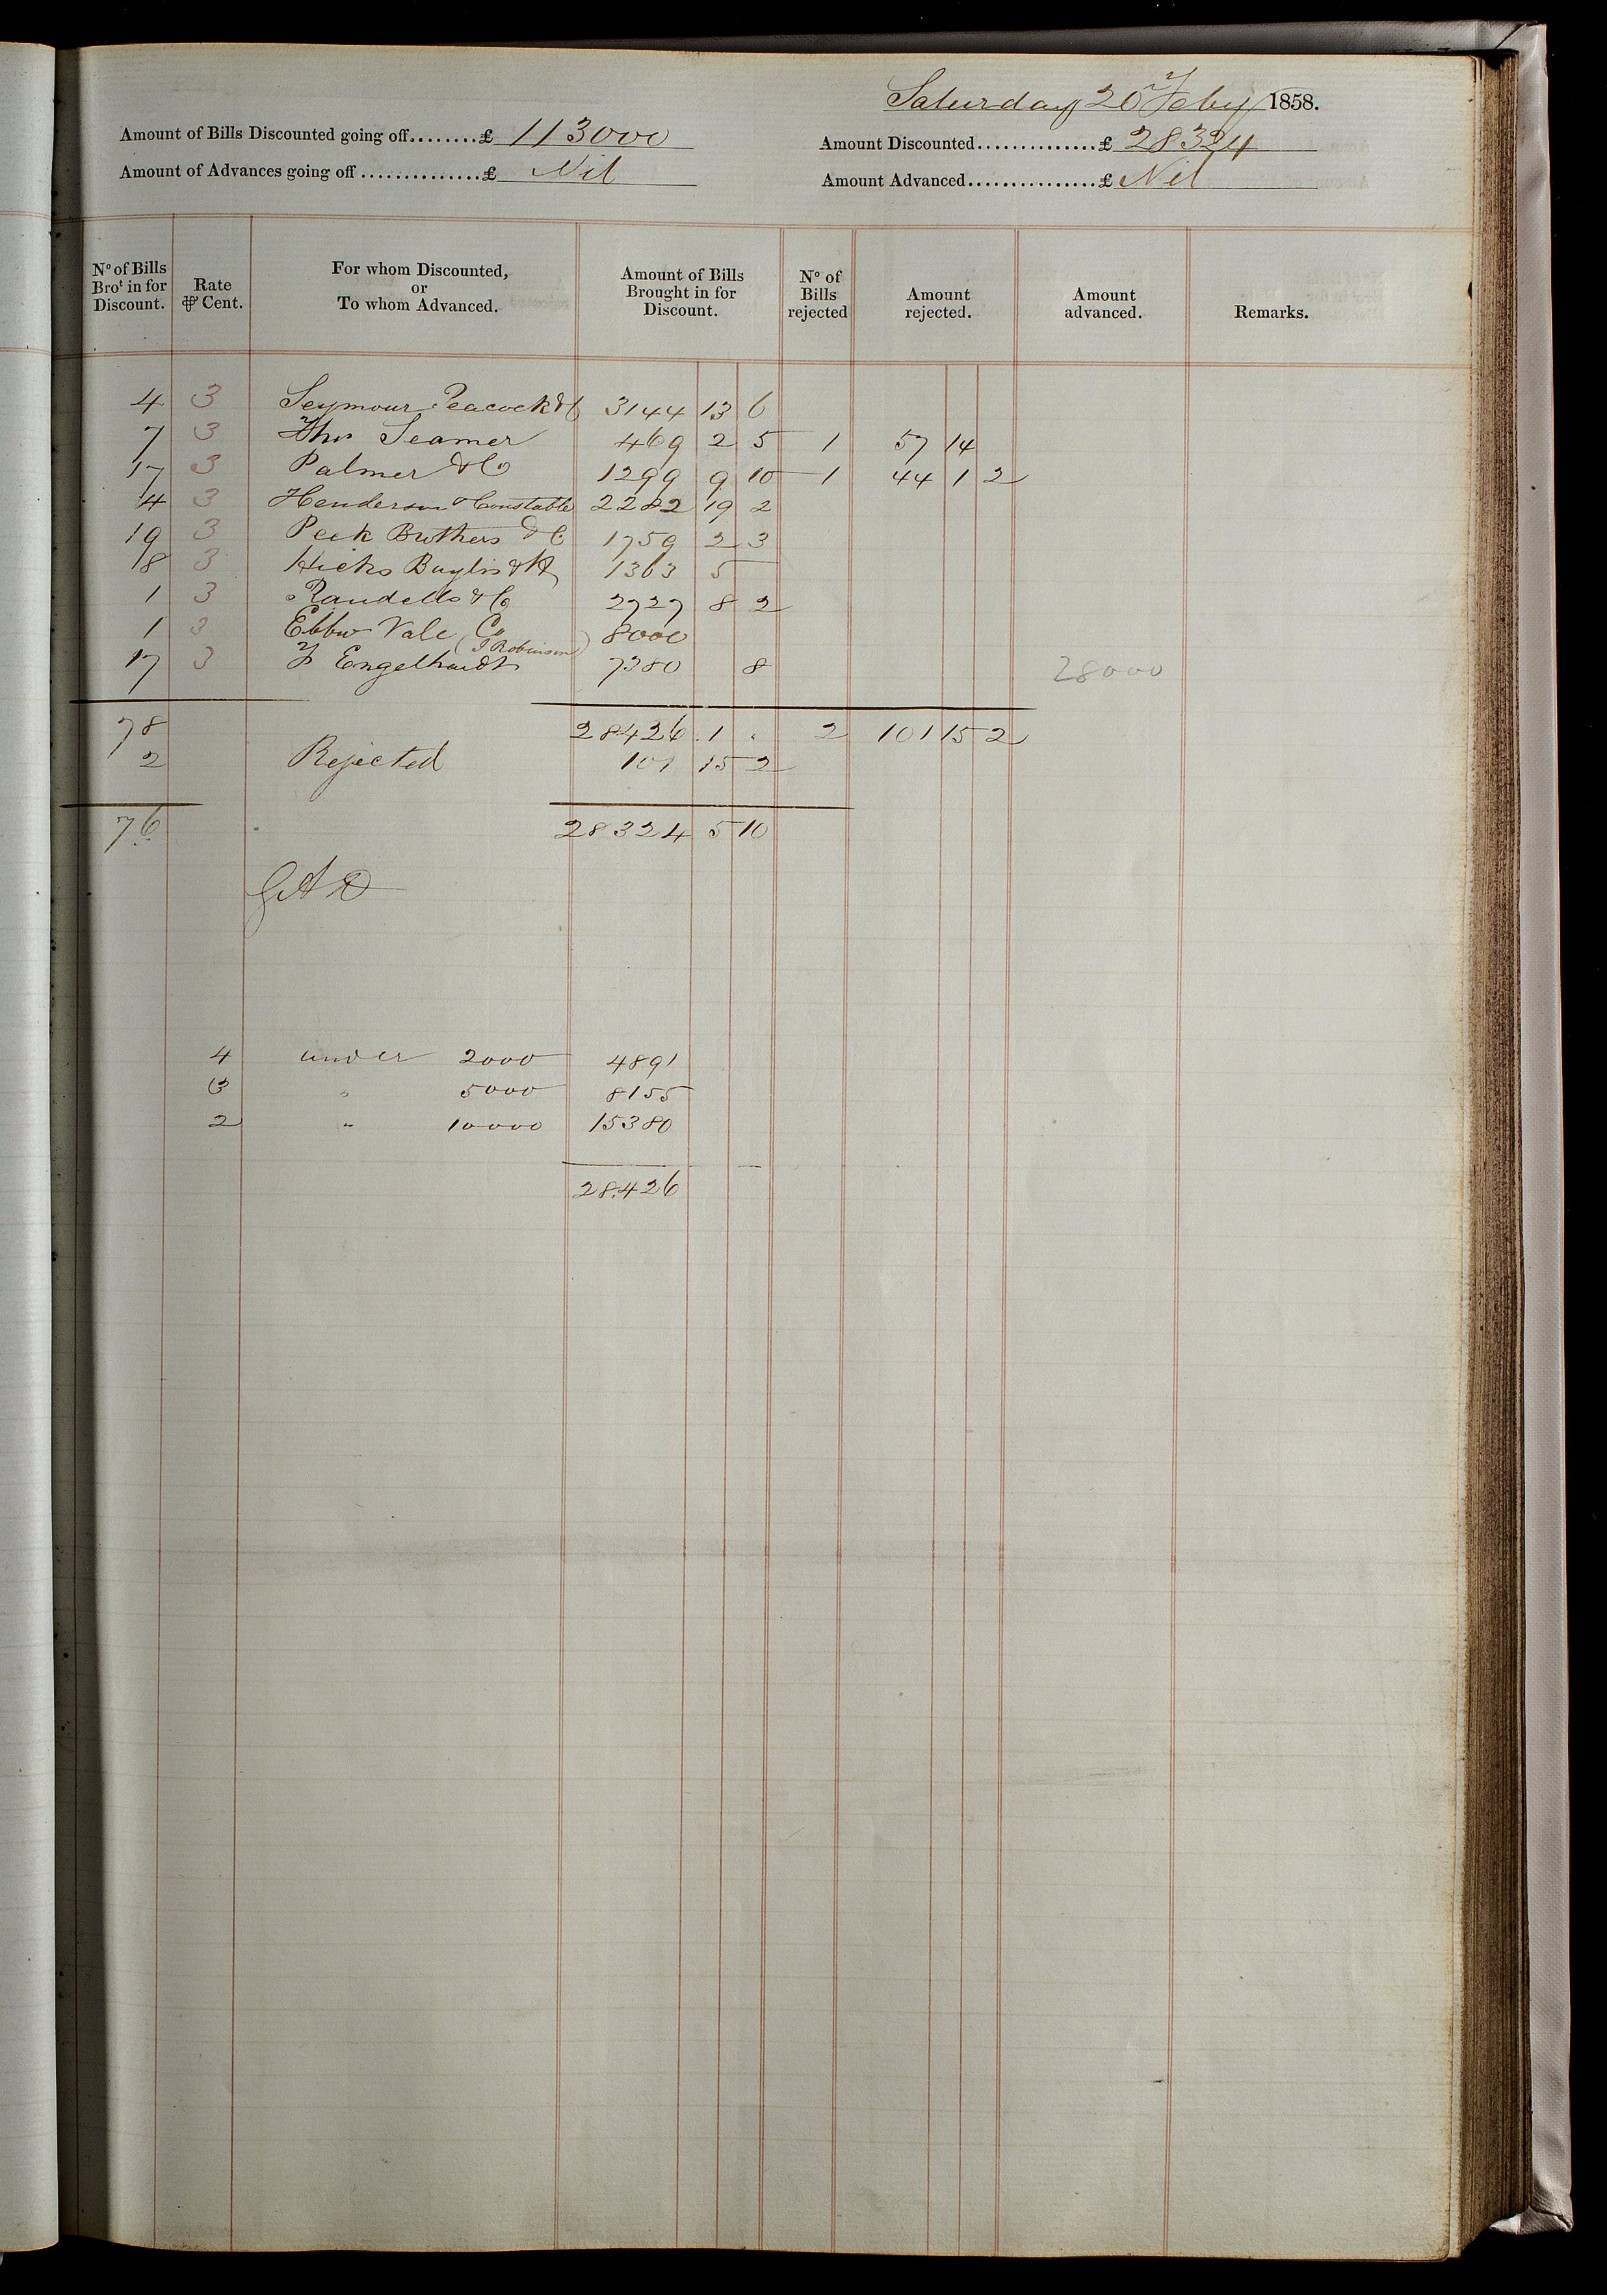 Saturday 20 Feby 1858.
Amount of Bills Discounted going off........£ 113000
Amount Discounted..............£ 28324
Amount of Advances going off..............£ Nil
Amount Advanced...............£ Nil
No of Bills Brot in for Discount.
Rate ⅌ Cent.
For whom Discounted, or To whom Advanced.
Amount of Bills Brought in for Discount.
No of Bills rejected
Amount rejected.
Amount advanced.
Remarks.
4 3 Seymour Peacock & C 3144 13 6
7 3 Thos Seamer 469 2 5 1 57 14
17 3 Palmer & Co 1299 9 10 1 44 1 2
4 3 Henderson & Constable 2282 19 2
19 3 Peek Brothers & C 1759 2 3
8 3 Hicks Baylis & 1363 5
1 3 Randells & Co 2727 8 2
1 3 Ebbw Vale Co (J Robinson) 8000
17 3 Engelhardt 7380 8 28000
78 28426 1 " 2 101 15 2
2 Rejected 101 15 2
76 28324 5 10
4 under 2000 4891
3 " 5000 8155
2 " 10000 15380
28.426